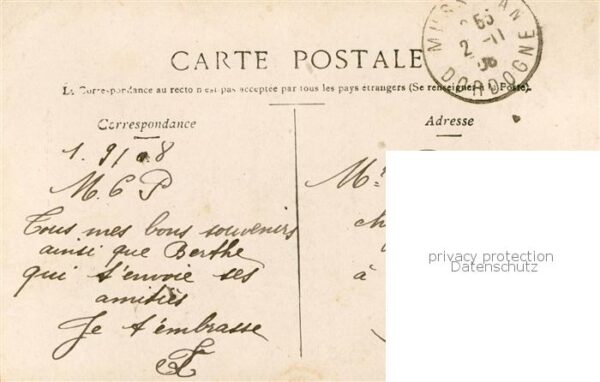 CARTE POSTALE
La Correspondance au recto n'est pas acceptée par tous les pays étrangers (Se renseigner à la Poste).
DORDOGNE
Correspondance
M. C P
Tous mes bons souvenirs
ainsi que Berthe
qui t'envoie ses
amitiés
Je t'embrasse
Adresse
à
privacy protection
Datenschutz